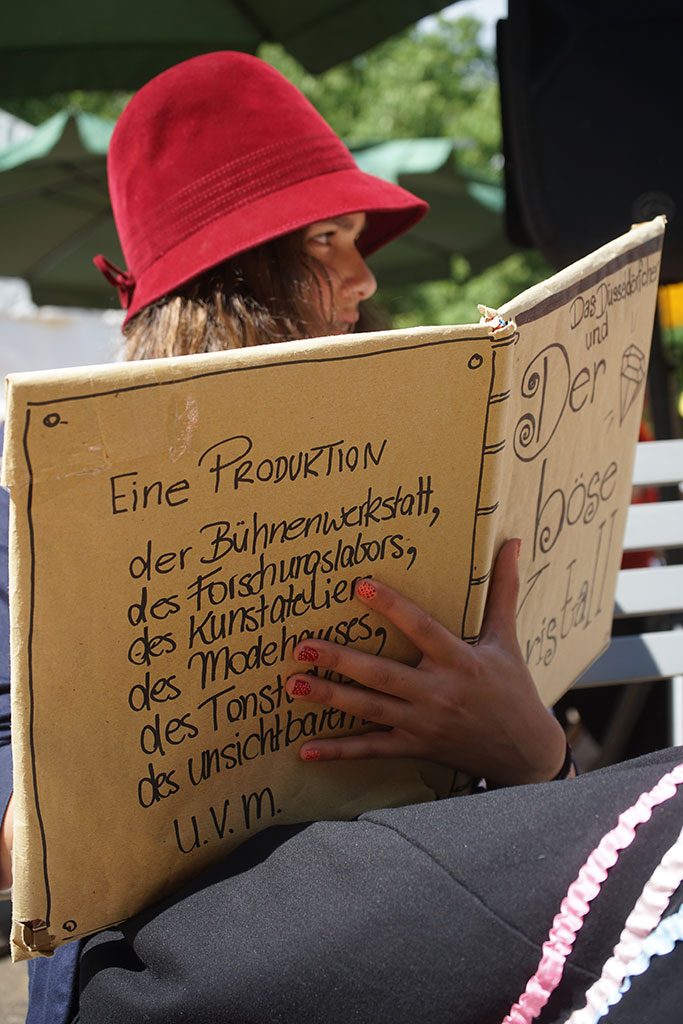 Eine PRODUKTION
der Bühnenwerkstatt,
des Forschungslabors,
des Kunstatelier
des Modehauses,
des Tonst
des unsichtbaren
u.v.m.
Das Düsseldörfchen
und
Der
böse
Kristall